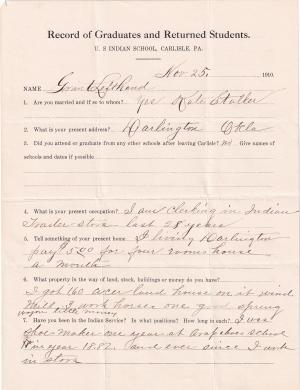 Record of Graduates and Returned Students.
U. S INDIAN SCHOOL, CARLISLE, PA.
Nov 25, 1910.
NAME Grant Lefthand
1. Are you married and if so to whom? Yes Kate Staller
2. What is your present address? Darlington Okla
3. Did you attend or graduate from any other schools after leaving Carlisle? No. Give names
of schools and dates if possible
4. What is your present occupation? I am clerking in Indian
Trader store last 28 years
5. Tell something of your present home I living Darlington
pay 5.00 for four rooms house
a month
6. What property in the way of land, stock, buildings or money do you have?
I got 160 acer land house on it wind
Mill, I work horses one good spring
wagon little money
7. Have you been in the Indian Service? In what positions? How long in each? I was
Shoe maker one year at Arapahoe school
in year 1882. and ever since I work
in store